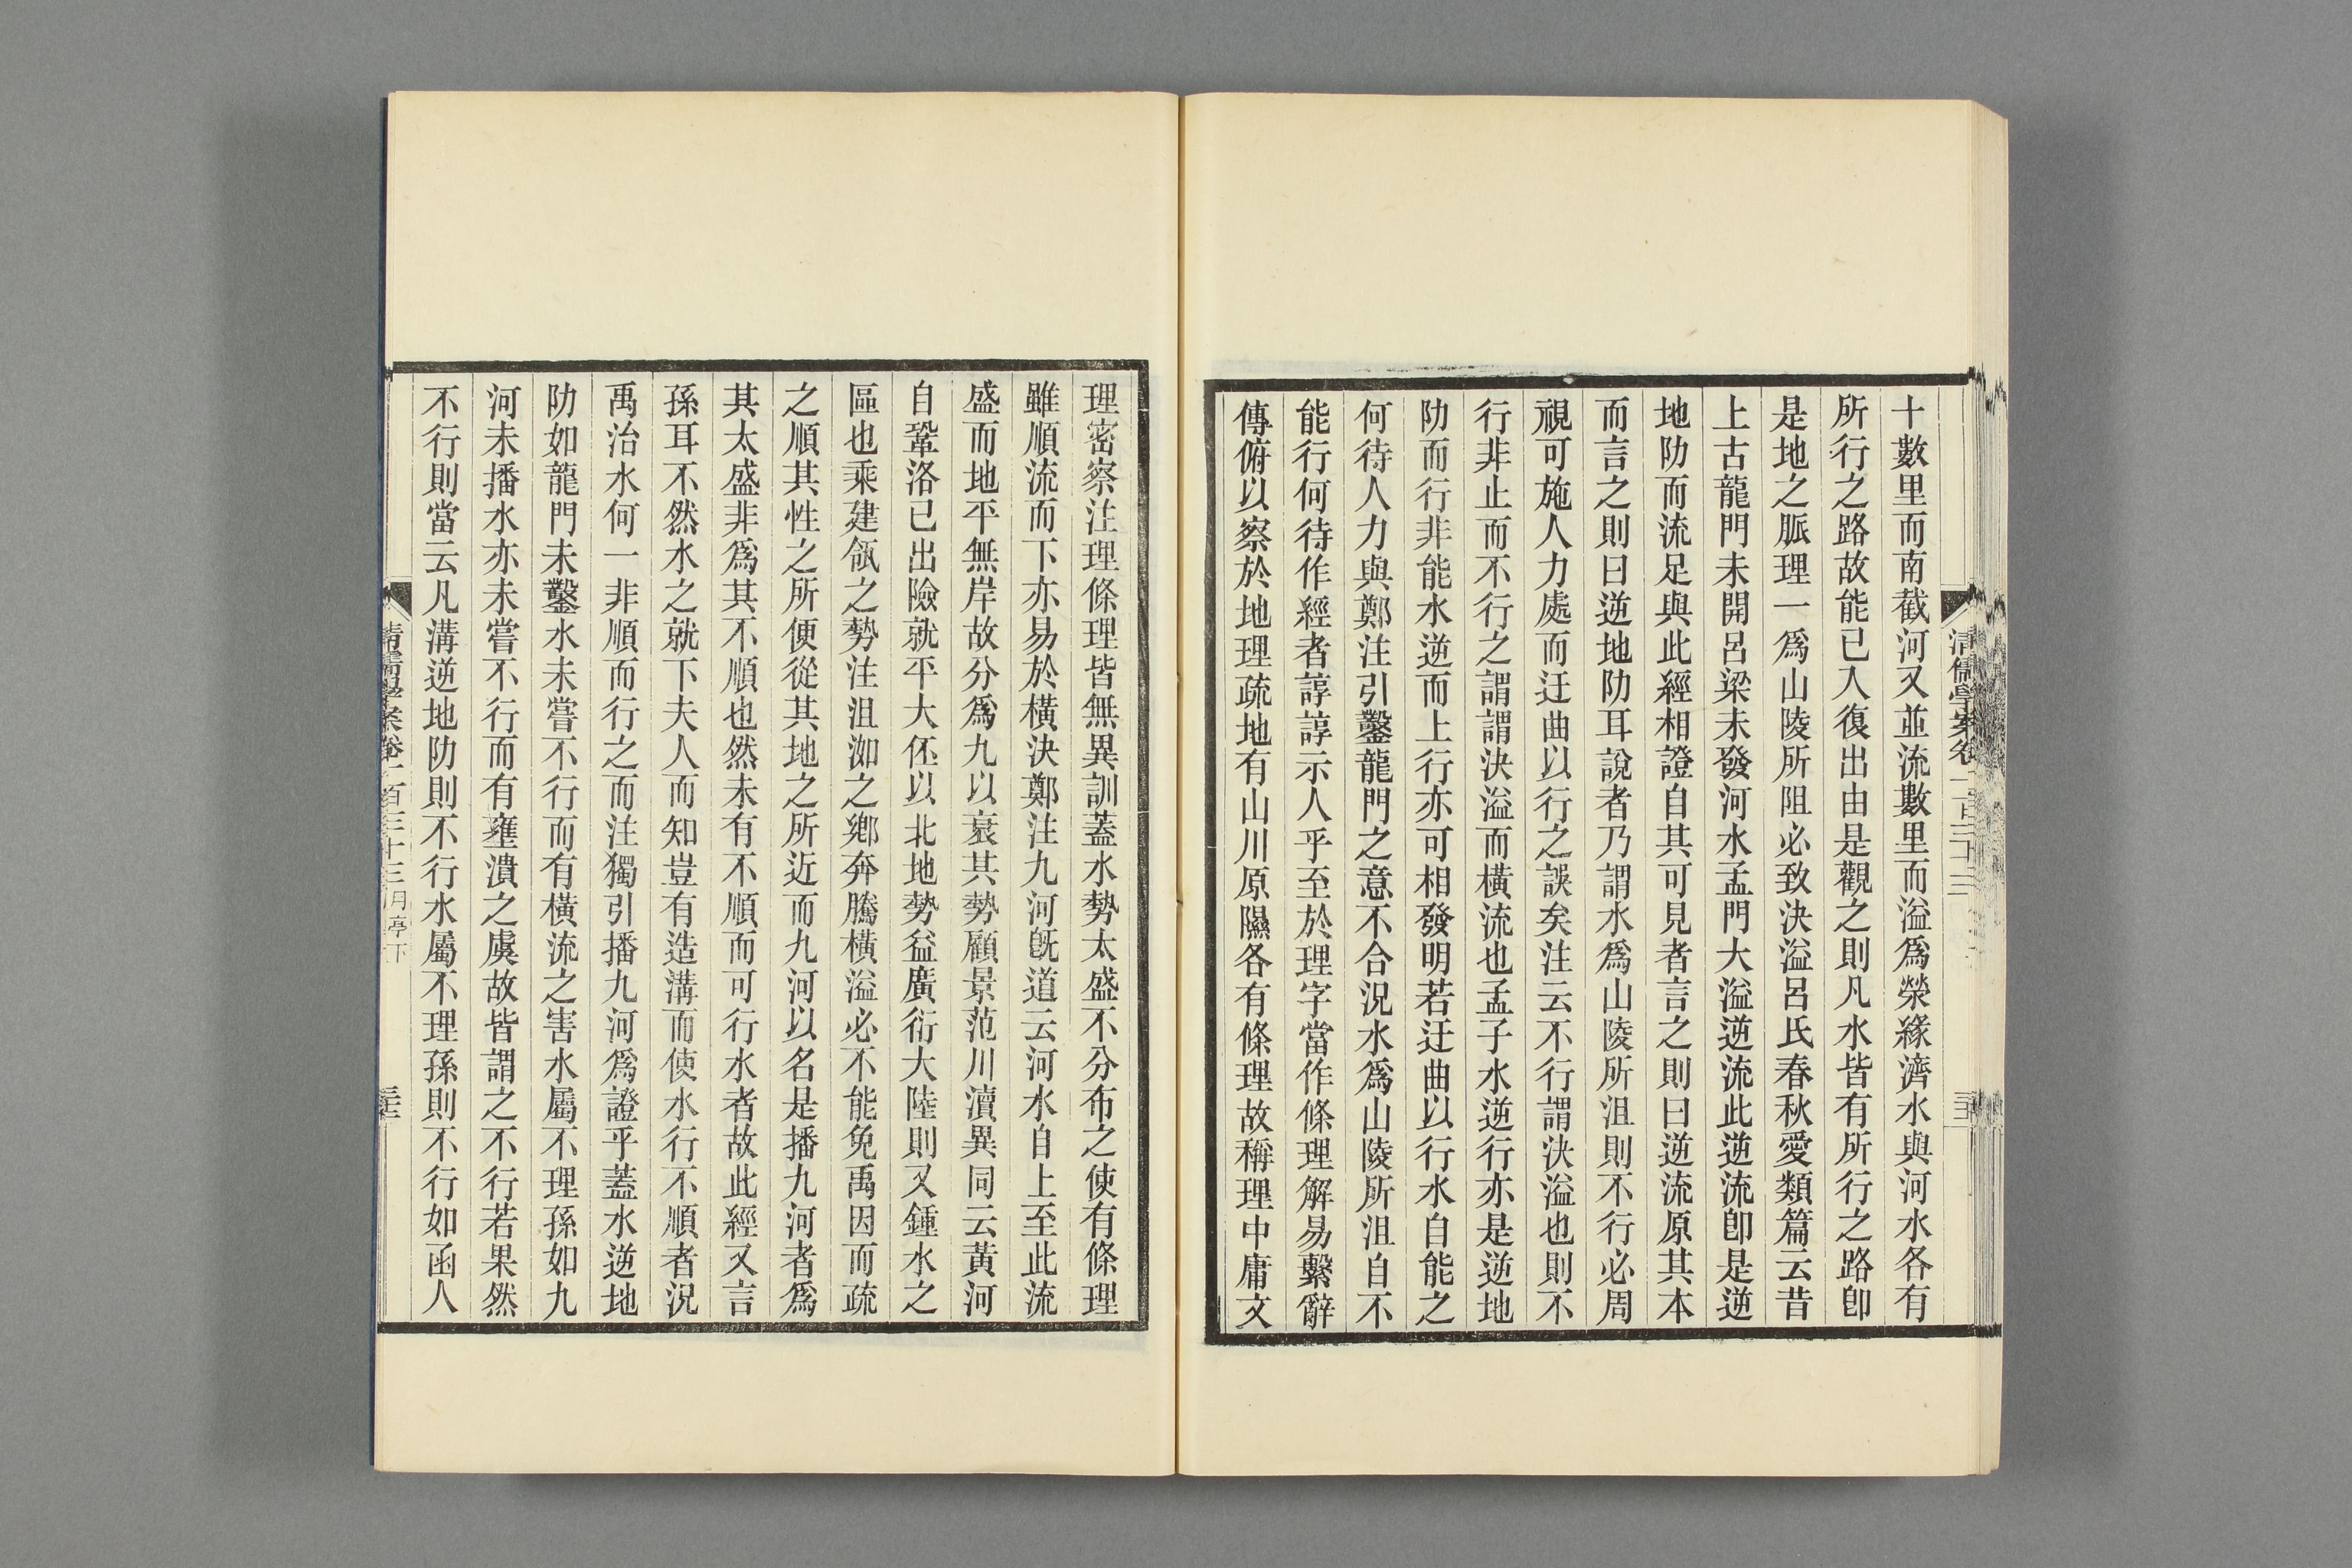 十數里而南截河又並流數里而溢爲滎緣濟水與河水各有
所行之路故能已入復出由是觀之則凡水皆有所行之路卽
是地之脈理一爲山陵所阻必致決溢呂氏春秋愛類篇云昔
上古龍門未開呂梁未發河水孟門大溢逆流此逆流卽是逆
地阞而流足與此經相證自其可見者言之則曰逆流原其本
而言之則曰逆地阞耳說者乃謂水爲山陵所沮則不行必周
視可施人力處而迂曲以行之誤矣注云不行謂決溢也則不
行非止而不行之謂謂決溢而橫流也孟子水逆行亦是逆地
阞而行非能水逆而上行亦可相發明若迂曲以行水自能之
何待人力與鄭注引鑿龍門之意不合況水爲山陵所沮自不
能行何待作經者諄諄示人乎至於理字當作條理解易繫辭
傳俯以察於地理疏地有山川原隰各有條理故稱理中庸文
理密察注理條理皆無異訓蓋水勢太盛不分布之使有條理
雖順流而下亦易於橫決鄭注九河旣道云河水自上至此流
盛而地平無岸故分爲九以衰其勢顧景范川瀆異同云黃河
自鞏洛已出險就平大伾以北地勢益廣衍大陸則又鍾水之
區也乘建瓴之勢注沮洳之鄉奔騰橫溢必不能免禹因而疏
之順其性之所便從其地之所近而九河以名是播九河者爲
其太盛非爲其不順也然未有不順而可行水者故此經又言
孫耳不然水之就下夫人而知豈有造溝而使水行不順者況
禹治水何一非順而行之而注獨引播九河爲證乎蓋水逆地
阞如龍門未鑿水未嘗不行而有橫流之害水屬不理孫如九
河未播水亦未嘗不行而有壅潰之虞故皆謂之不行若果然
不行則當云凡溝逆地阞則不行水屬不理孫則不行如函人
清儒學案卷一百三十三 月亭下